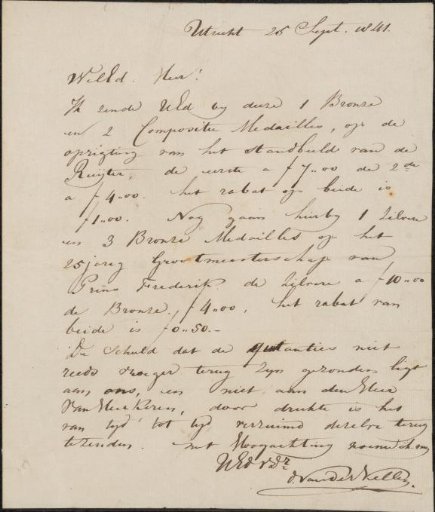 Utrecht 25 Sept. 1841.
WelEd. Heer!
Ik zende UEd by deze 1 Bronze
en 2 Compositie Medailles, op de
oprigting van het standbeeld van de
Ruyter, de eerste a f 7„00 de 2de
a f 4„00. het rabat op beide is
f 1„00. Nog gaan hierby 1 zilvere
en 3 Bronze Medailles op het
25jarig Grootmeesterschap van
Prins Frederik de zilvere a f 10„00
de Bronze, f 4„00, het rabat van
beide is f 0„50.–
De schuld dat de quitanties niet
reeds vroeger terug zyn gezonden ligt
aan ons, en niet aan den Heer
van , door drukte is het
van tyd tot tyd verzuimd dezelve terug
te zenden. met Hoogachting noem ik my
UEd. Dr.
van der Kellen.